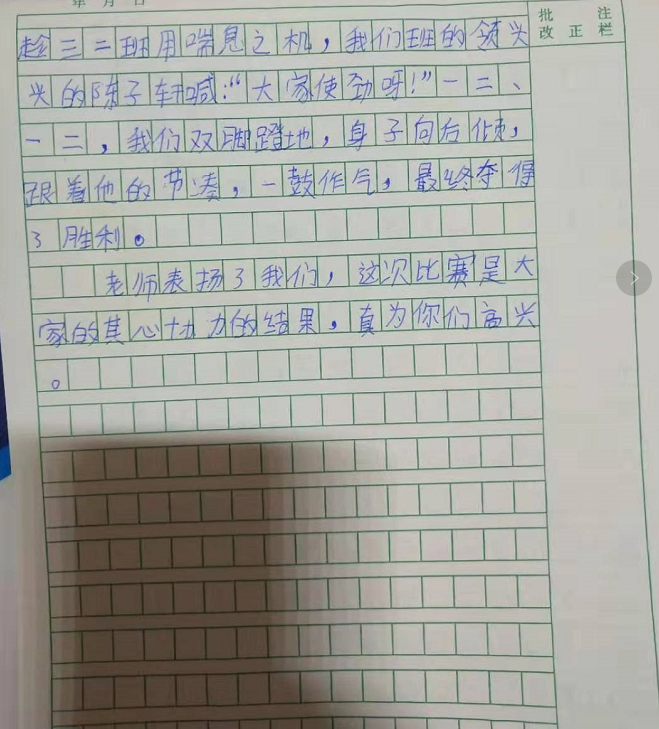 年 月 日
批 注
改 正 栏
趁三二班用喘息之机，我们班的领头
头的陈子轩喊：“大家使劲呀！”一二、
一二，我们双脚蹬地，身子向后倾，
跟着他的节凑，一鼓作气，最终夺得
了胜利。
老师表扬了我们，这次比赛是大
家的其心协力的结果，真为你们高兴
。